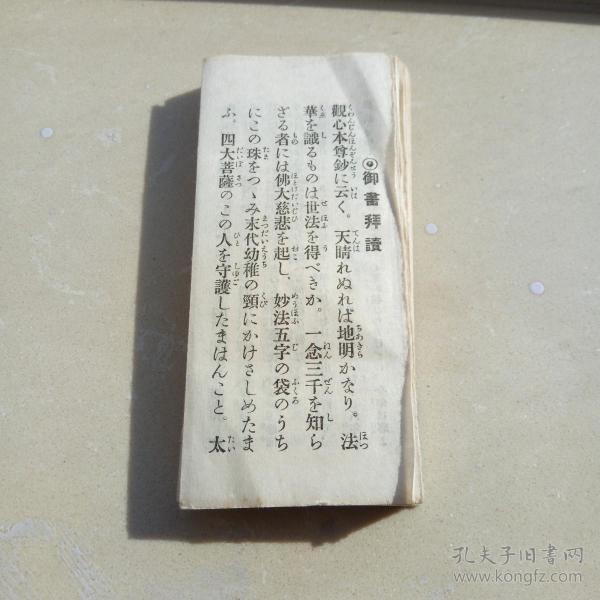 ◉御書拜讀
觀心本尊鈔に云く。天晴れぬれば地明かなり。法
華を識るものは世法を得べきか。一念三千を知ら
ざる者には佛大慈悲を起し、妙法五字の袋のうち
にこの珠をつゝみ末代幼稚の頸にかけさしめたま
ふ。四大菩薩のこの人を守護したまはんこと。太
孔夫子旧书网
www.kongfz.com